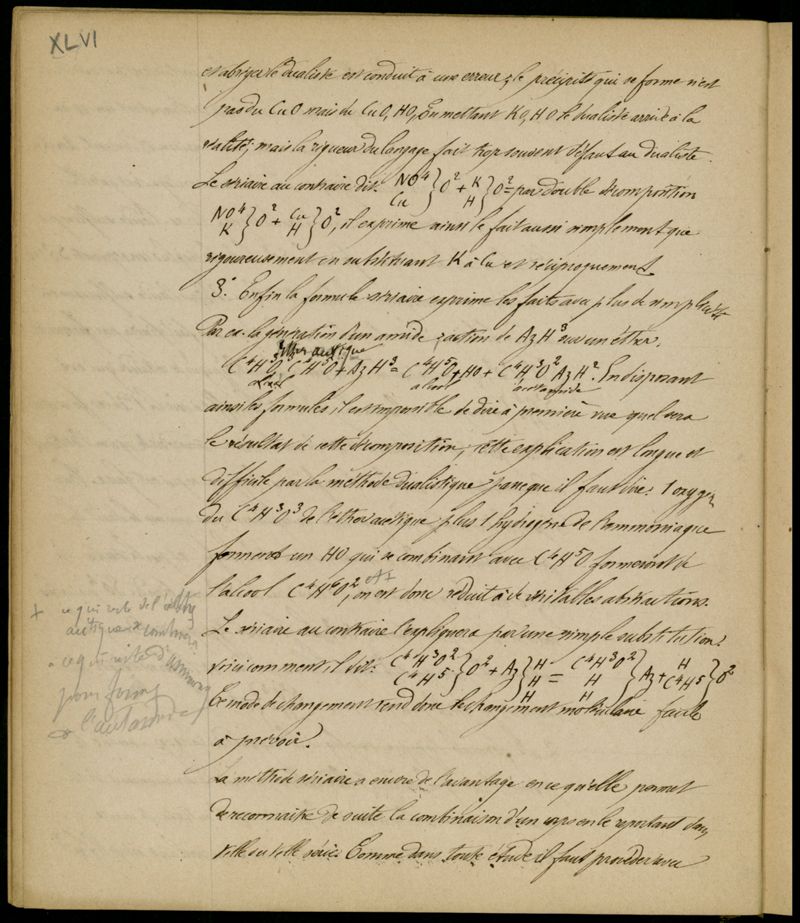 XLVI
le dualiste est conduit à une erreur, le précipité qui se forme n'est
pas du CuO mais du CuO, HO, En mettant KO, HO le dualiste arrive à la
réalité, mais la rigueur du langage fait trop souvent défaut au dualiste.
Le sériaire au contraire dit: NO⁴ Cu } O² + K H } O² = par double décomposition
NO⁴ K } O² + Cu H } O², il exprime ainsi le fait aussi simplement que
rigoureusement en substituant K à Cu et réciproquement.
3.° Enfin la formule sériaire exprime les faits avec plus de simplicité
Par ex. la génération d'un amide, action de AzH³ sur un éther.
éther acétique
C⁴H³O³, C⁴H⁵O + AzH³ = C⁴H⁵O + HO + C⁴H³O² AzH². En disposant
alcool acétamide
ainsi les formules, il est impossible de dire à première vue quel sera
le résultat de cette décomposition, cette explication est longue et
difficile par la méthode dualistique parce que il faut dire: 1 oxygène
du C⁴H³O³ de l'éther acétique plus 1 hydrogène de l'ammoniaque
forment un HO qui se combinant avec C⁴H⁵O formeront de
l'alcool C⁴H⁶O², et + on est donc réduit à de véritables abstractions.
+ ce qui reste de l'éther
acétique se combine
a ce qui reste d'ammoniaq
pour former
l'acétamide
Le sériaire au contraire l'expliquera par une simple substitution:
voici comment, il dit: C⁴H³O² C⁴H⁵ } O² + Az } H H H = C⁴H³O² H H } Az + H C⁴H⁵ } O²
Ce mode de changement rend donc le changement moléculaire facile
à prévoir.
La méthode sériaire a encore de l'avantage en ce qu'elle permet
de reconnaître de suite la combinaison d'un corps en le reportant dans
telle ou telle série. Comme dans toute étude il faut procéder avec